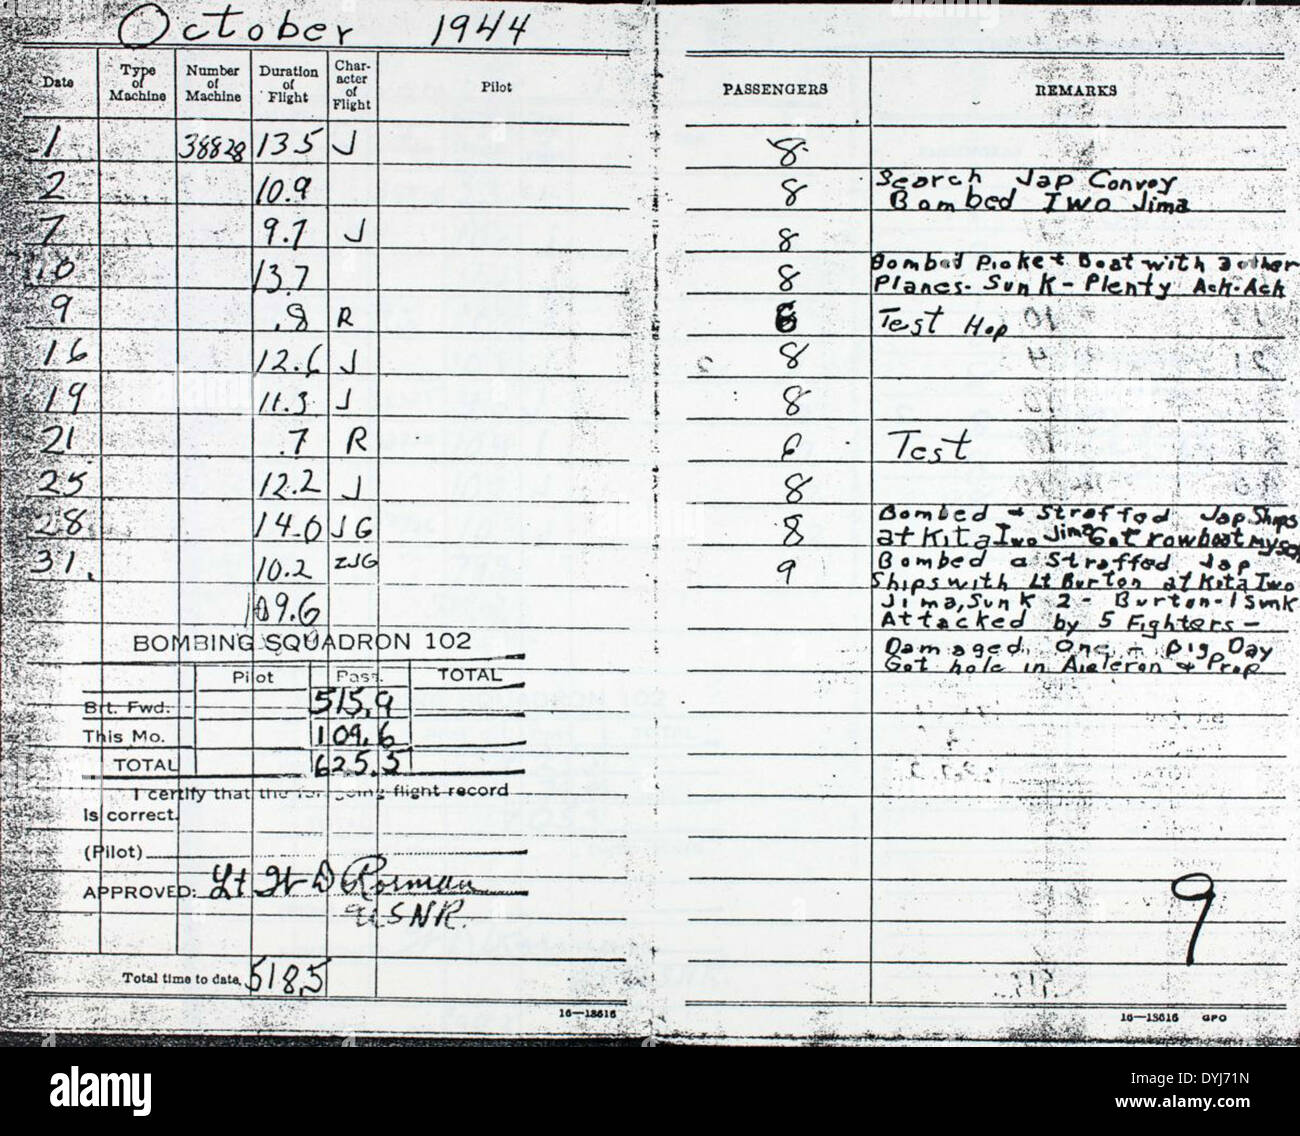 October 1944
Date Type of Machine Number of Machine Duration of Flight Char- acter of Flight Pilot PASSENGERS REMARKS
1 38828 13.5 J 8
2 10.9 8 Search Jap Convoy
Bombed Iwo Jima
7 9.7 J 8
10 13.7 8 Bombed Picket Boat with 2 other
Planes - Sunk - Plenty Ack-Ack
9 .8 R 6 Test Hop
16 12.6 J 8
19 11.3 J 8
21 .7 R 6 Test
25 12.2 J 8
28 14.0 JG 8 Bombed + Straffed Jap Ships
at Kita Iwo Jima Got rowboat myself
31. 10.2 ZJG 9 Bombed & Straffed Jap
Ships with Lt Burton at Kita Iwo
Jima, Sunk 2 - Burton - 1 Sunk
109.6 Attacked by 5 Fighters -
Damaged One - Big Day
Got hole in Aigleron & Prop
BOMBING SQUADRON 102
Pilot Pass. TOTAL
Brt. Fwd. 515.9
This Mo. 109.6
TOTAL 625.5
I certify that the foregoing flight record
is correct.
(Pilot)
APPROVED: Lt
USNR.
Total time to date, 518.5
9
16—13616
16—13616 GPO
alamy
alamy
Image ID: DYJ71N
www.alamy.com